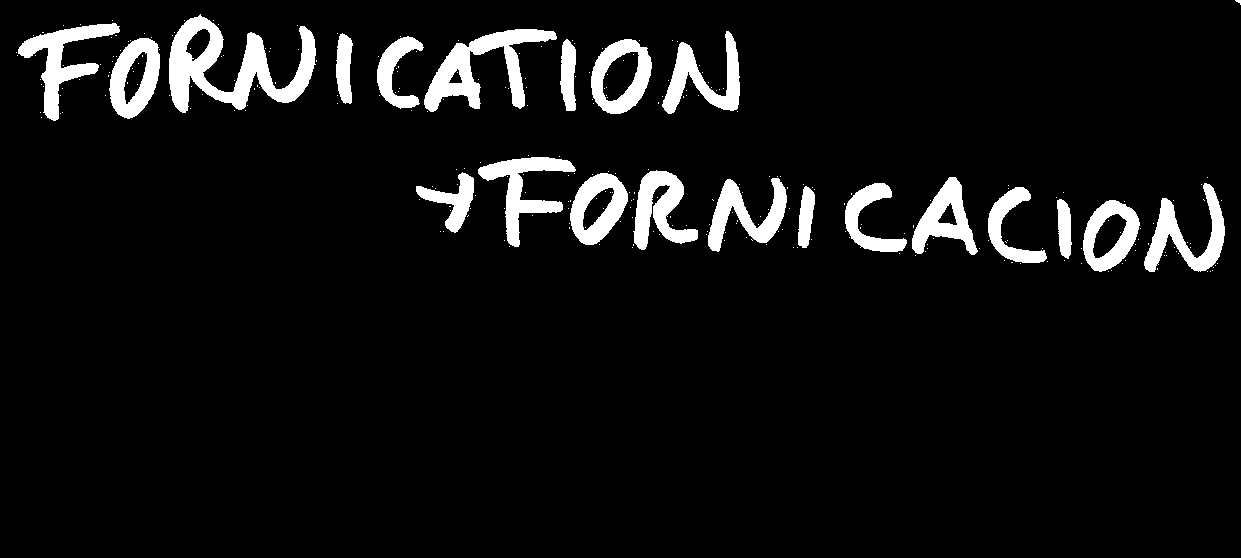 FORNICATION
→FORNICACION